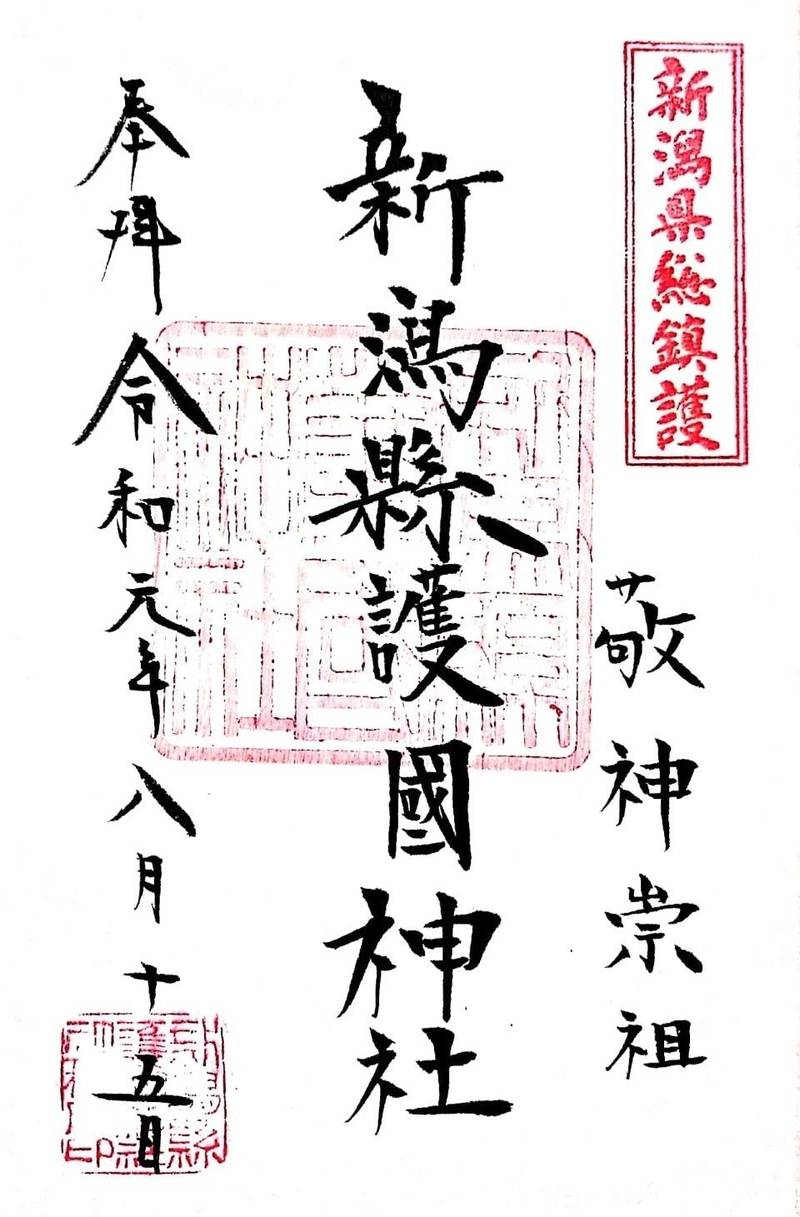 新潟県総鎮護
敬神崇祖
新潟縣護國神社
奉拝 令和元年八月十五日